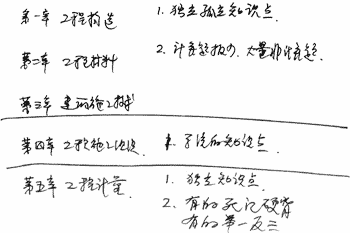 第一章 工程构造 1. 独立孤立知识点.
第二章 工程材料 2. 计算题极少, 大量非计算题.
第三章 建筑施工技术
第四章 工程施工 1. 系统的知识点.
第五章 工程计量 1. 独立知识点.
2. 有的死记硬背
有的举一反三